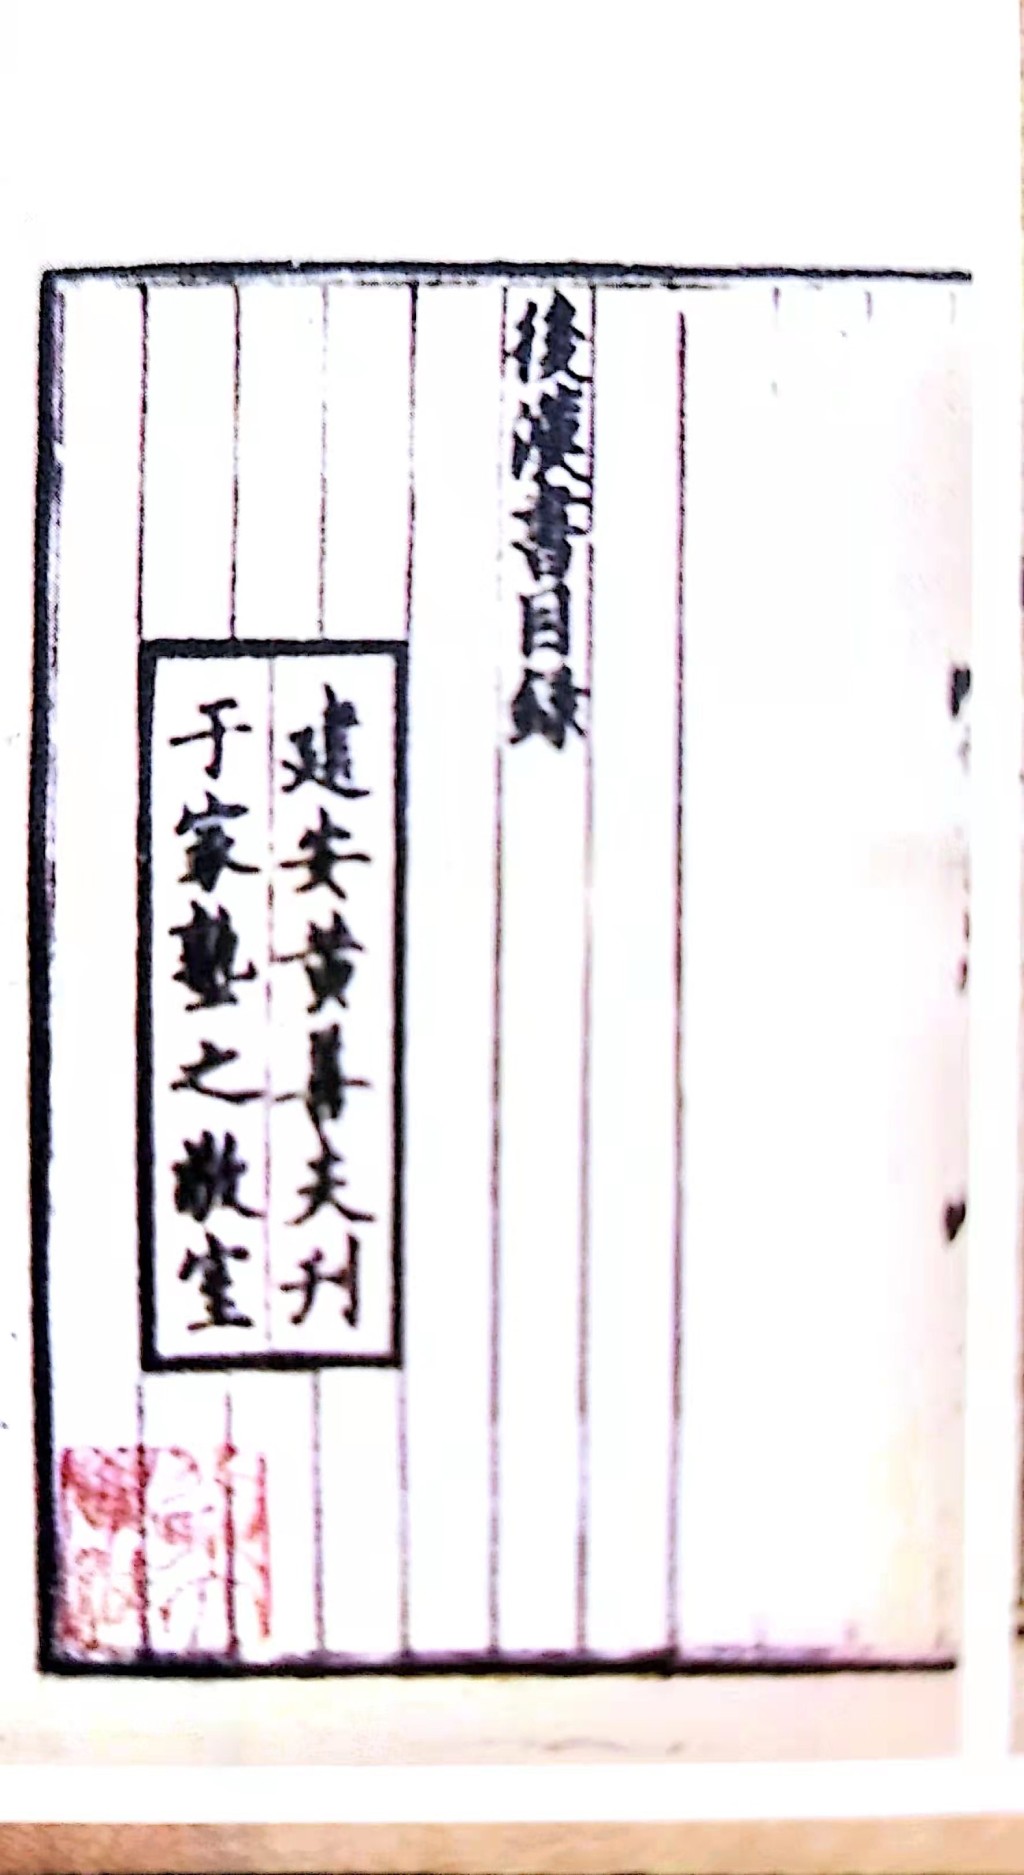 後漢書目錄
建安黄善夫刋
于家塾之敬室